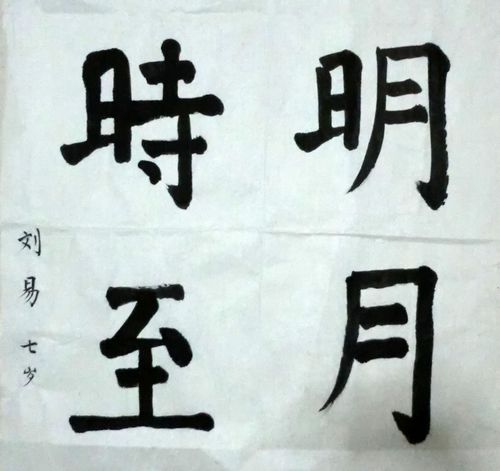 明月
時至
刘易 七岁